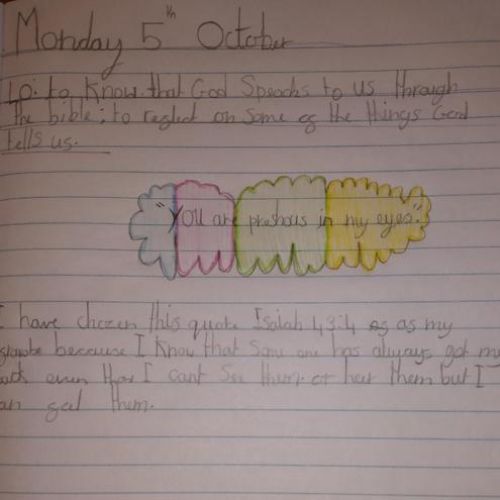 Monday 5th October
LO: to know that God Speaks to us through
the bible; to reglect on some of the things God
tells us.
"You are preshous in my eyes."
I have chozen this quote Isaiah 43:4 as my
because I know that Some one has always got my
even thow I cant See them or hear them but I
them.